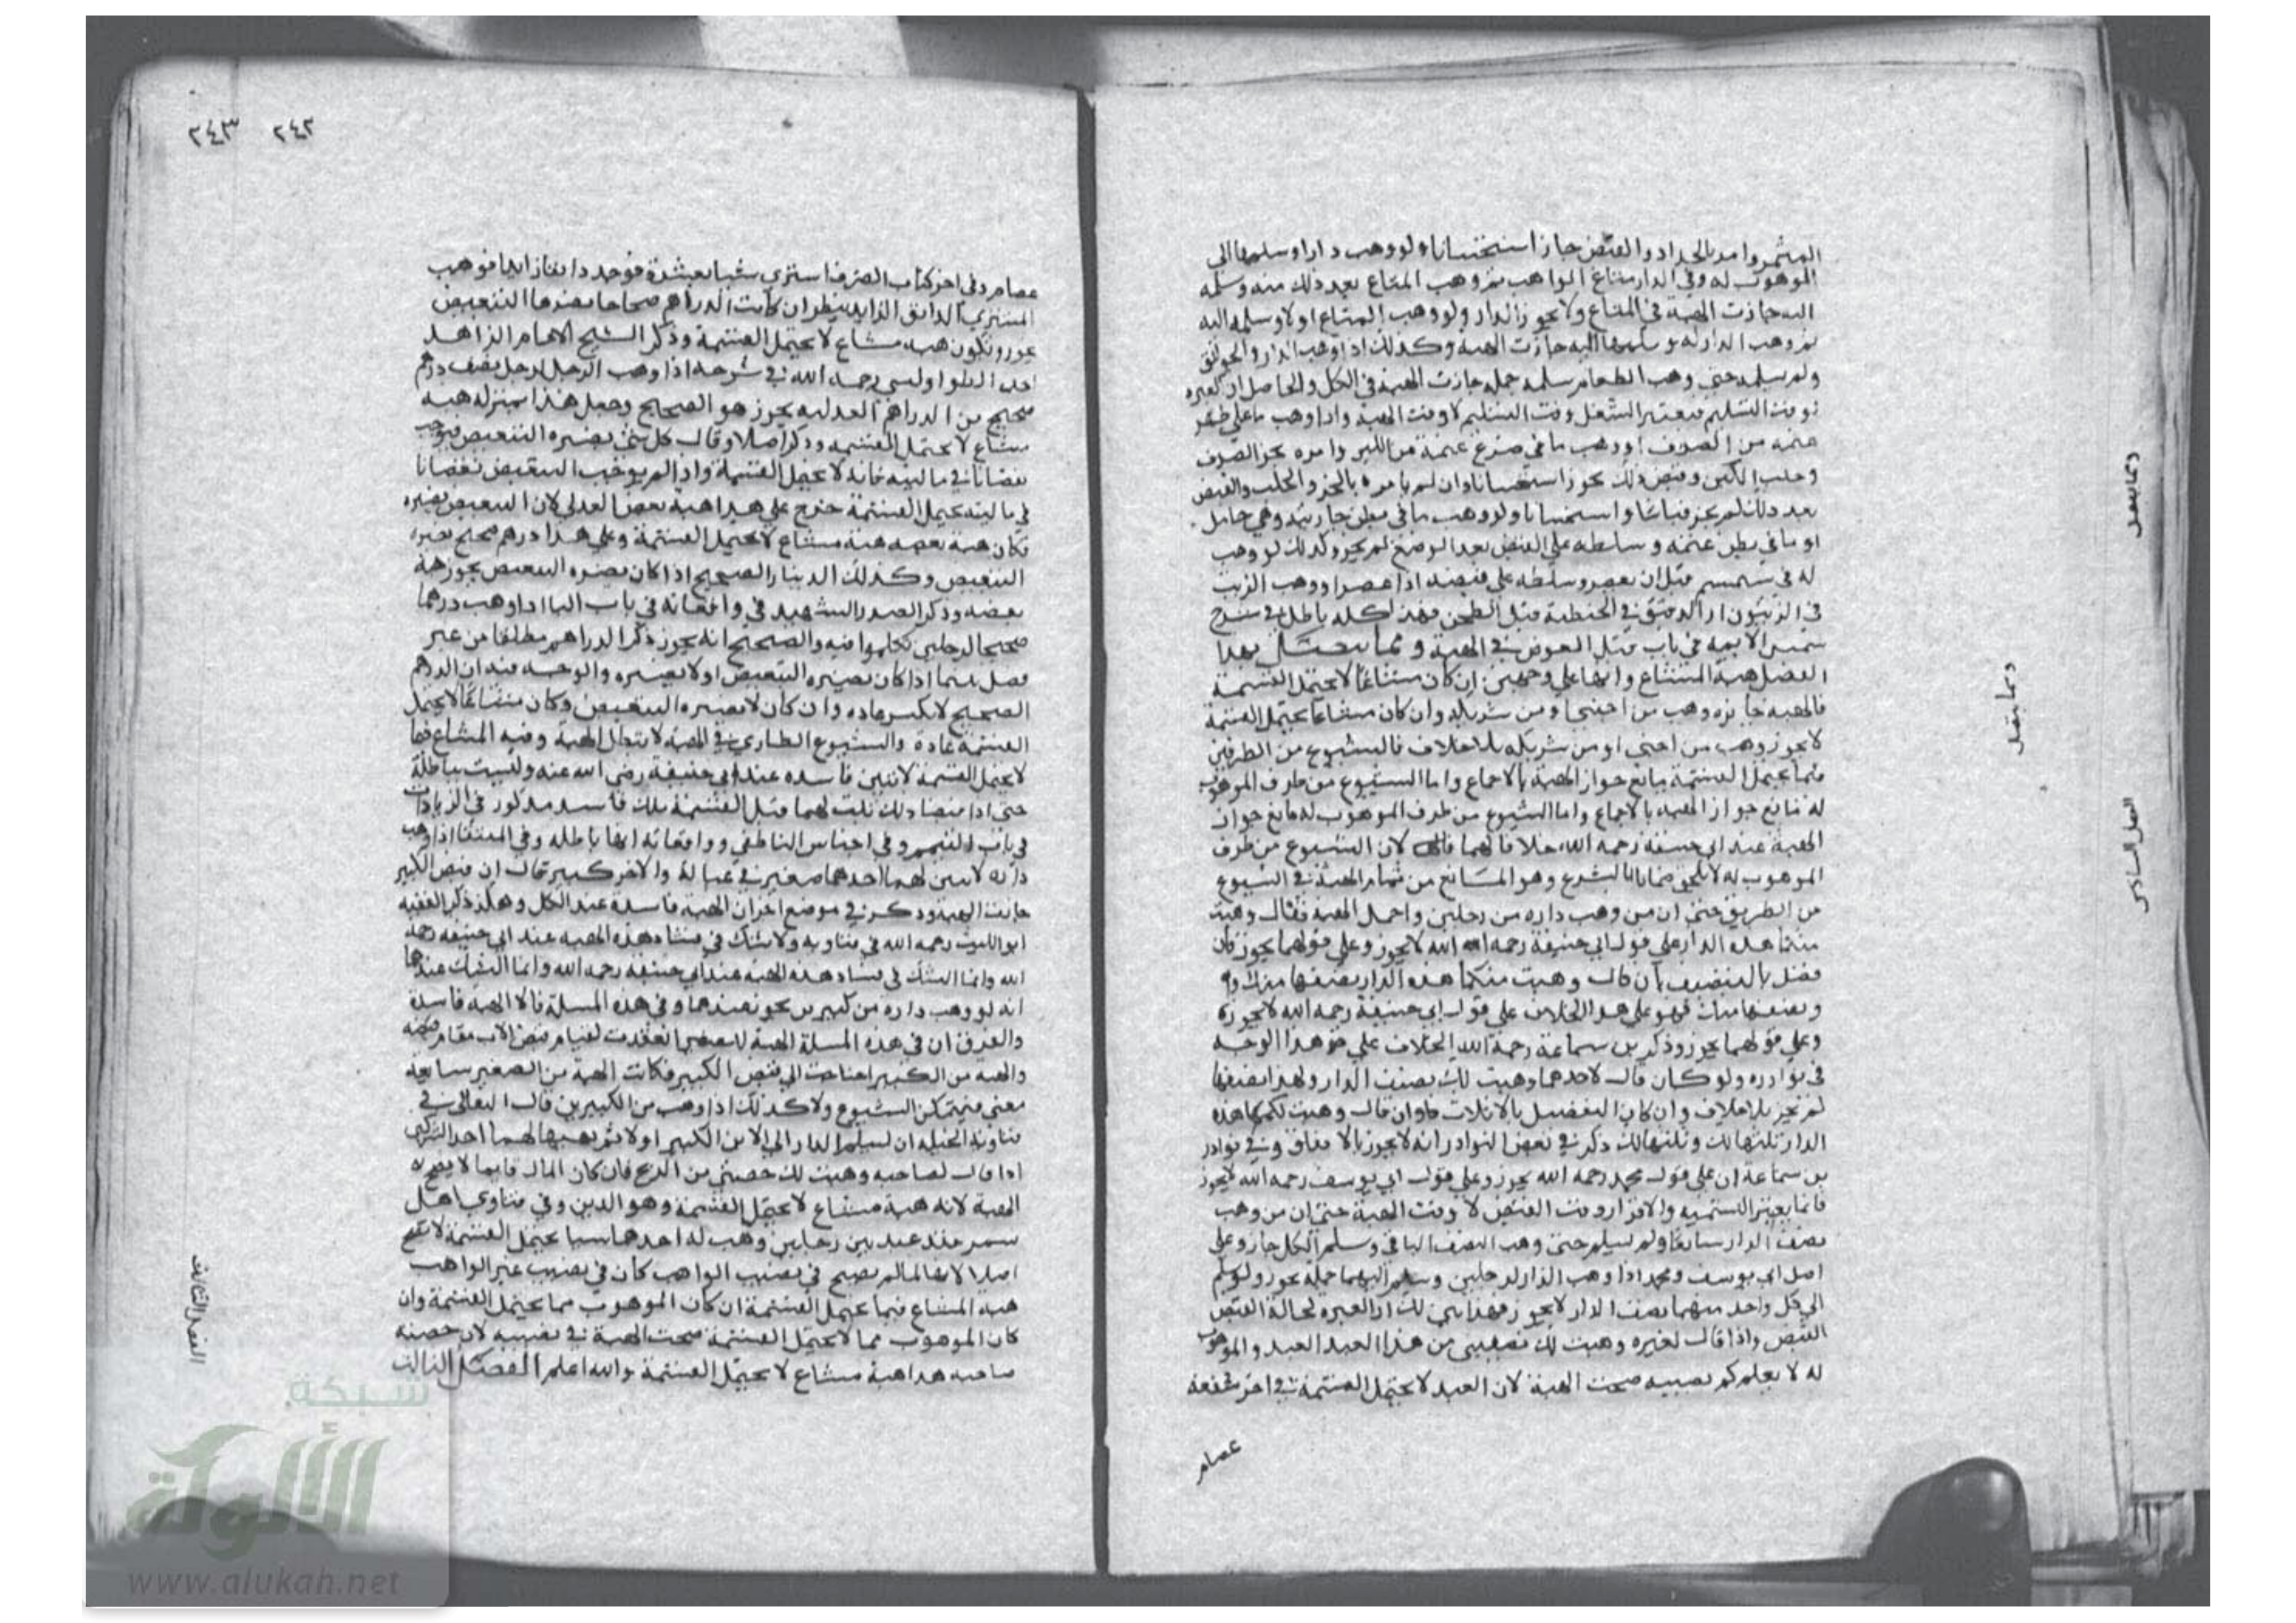 الثمر وامره بالجداد والقبض جاز استحسانا ولو وهب دارا وسلمها الى
الموهوب له وفي الدار متاع الواهب ثم وهب المتاع بعد ذلك منه وسلمه
اليه جازت الهبة في المتاع ولا يجوز الدار ولو وهب المتاع اولا وسلمه اليه
ثم وهب الدار له وسلمها اليه جازت الهبة وكذلك اذا وهب الدار والجوالق
ولم يسلمه حتى وهب الطعام سلمه جملة جازت الهبة في الكل والحاصل ان العبرة
لوقت التسليم فيعتبر الشغل وقت التسليم لا وقت الهبة واذا وهب ما على ظهر
غنمه من الصوف او وهب ما في ضرع غنمة من اللبن وامره بجز الصوف
وحلب اللبن وقبض ذلك يجوز استحسانا وان لم يامره بالجز والحلب والقبض
بعد ذلك لم يجز قياسا واستحسانا ولو وهب ما في بطن جاريته وهي حامل
او ما في بطن غنمه وسلطه على القبض بعد الوضع لم يجز وكذلك لو وهب
له في سمسم قبل ان يعصر وسلطه على قبضه اذا عصر او وهب الزيت
في الزيتون او الدقيق في الحنطة قبل الطحن فهذا كله باطل في شرح
شمس الايمه في باب قبل العوض في الهبة ومما يتصل بهذا
الفصل هبة المشاع وانها على وجهين ان كان مشاعا لا يحتمل القسمة
فالهبة جايزه وهب من اجنبي او من شريكه وان كان مشاعا يحتمل القسمة
لا يجوز وهب من اجنبي او من شريكه بلا خلاف فالشيوع من الطرفين
فيما يحتمل القسمة مانع جواز الهبة بالاجماع واما الشيوع من طرف الموهوب
له مانع جواز الهبة بالاجماع واما الشيوع من طرف الموهوب له مانع جواز
الهبة عند ابي حنيفة رحمه الله خلافا لهما لان الشيوع من طرف
الموهوب له لا يلحق ضمانا بالتبرع وهو المانع من تمام الهبة في الشيوع
من الطريق حتى ان من وهب داره من رجلين واجمل الهبة فقال وهبت
منكما هذه الدار على قول ابي حنيفة رحمه الله لا يجوز وعلى قولهما يجوز فان
فصل بالتنصيف بان قال وهبت منكما هذه الدار نصفها منك
ونصفها منك فهو على هذا الخلاف على قول ابي حنيفة رحمه الله لا يجوز
وعلى قولهما يجوز وذكر بن سماعة رحمة الله الخلاف على نحو هذا الوجه
في نوادره ولو كان قال لاحدهما وهبت لك نصف الدار ولهذا نصفها
لم يجز بلا خلاف وان كان التفضيل بالاثلاث بان قال وهبت لكما هذه
الدار ثلثها لك وثلثها لك ذكر في بعض النوادر انه لا يجوز بالاتفاق وفي نوادر
بن سماعة ان على قول محمد رحمه الله يجوز وعلى قول ابي يوسف رحمه الله لا يجوز
فانما يعتبر التسمية والاقرار وقت القبض لا وقت الهبة حتى ان من وهب
نصف الدار شايعا ولم يسلم حتى وهب النصف الباقي وسلم الكل جاز وعلى
اصل ابي يوسف ومحمد اذا وهب الدار لرجلين وسلم اليهما جملة يجوز ولو سلم
الى كل واحد منهما نصف الدار لا يجوز فهذا يبين لك ان العبرة لحالة القبض
القبض واذا قال لغيره وهبت لك نصيبي من هذا العبد العبد والموهوب
له لا يعلم كم نصيبه صحت الهبة لان العبد لا يحتمل القسمة في اخر شفعة
عصام
ومما يتصل
ومما يفعل
الفصل السادس
٢٤٢ ٢٤٣
عصام وفي اخر كتاب الصرف اشترى شيا بعشرة فوجد دانقا زايدا فوهب
المشتري الدانق الزايد ينظر ان كانت الدراهم صحاحا يضرها التبعيض
يجوز وتكون هبه مشاع لا يحتمل القسمة وذكر الشيخ الامام الزاهد
احمد الطواويسي رحمه الله في شرحه اذا وهب الرجل لرجل نصف درهم
صحيح من الدراهم العدليه يجوز هو الصحيح وجعل هذا بمنزله هبه
مشاع لا يحتمل القسمة وذكر اصلا وقال كل شئ يضره التبعيض فيوجب
نقصانا في ماليته فانه لا يحتمل القسمة واذا لم يوجب التبعيض نقصانا
في ماليته يحتمل القسمة خرج على هذا هبة بعض العدلي لان التبعيض يضره
فكان هبة بعضه هبة مشاع لا يحتمل القسمة وعلى هذا درهم صحيح يضره
التبعيض وكذلك الدينار الصحيح اذا كان يضره التبعيض يجوز هبة
بعضه وذكر الصدر الشهيد في واقعاته في باب الباء اذا وهب درهما
صحيحا لرجلين تكلموا فيه والصحيح انه يجوز ذكر الدراهم مطلقا من غير
فصل بينما اذا كان يضره التبعيض او لا يضره والوجه فيه ان الدرهم
الصحيح لا يكسر عاده وان كان لا يضره التبعيض وكان مشاعا لا يحتمل
القسمة عادة والشيوع الطاري في الهبة لا يبطل الهبة وفيه المشاع فيما
لا يحتمل القسمة لاثنين فاسده عند ابي حنيفة رضي الله عنه وليست بباطلة
حتى اذا قبضا ذلك ثلث لهما قبل القسمة ملك فاسد مذكور في الزيادات
في باب القسم وفي اجناس الناطفي وواقعاته انها باطله وفي المنتقى اذا وهب
داره لابنين لهما احدهما صغير في عياله والاخر كبير قال ان قبض الكبير
جازت الهبة وذكر في موضع اخر ان الهبة فاسدة عند الكل وهكذا ذكر الفقيه
ابو الليث رحمه الله في فتاويه ولا شك في فساد هذه الهبه عند ابي حنيفه رحمة
الله وانما الشك في فساد هذه الهبة عند ابي حنيفة رحمه الله وانما الشك عندهما
انه لو وهب داره من كبيرين يجوز عندهما وفي هذه المسلة قالا الهبة فاسدة
والفرق ان في هذه المسلة الهبة للصغير انعقدت لقيام قبض الاب مقام قبضه
والهبه من الكبير احتاجت الى قبض الكبير فكانت الهبة من الصغير سابقة
معنى فيتمكن الشيوع ولا كذلك اذا وهب من الكبيرين قال البقالي في
فتاويه الحيله ان يسلم الدار الى الابن الكبير اولا ثم يهبها لهما احد الشريكين
اذا قال لصاحبه وهبت لك حصتي من الربح فان كان المال قايما لا يصح
الهبة لانه هبة مشاع لا يحتمل القسمة وهو الدين وفي فتاوي اهل
سمرقند عبد بين رجلين وهب له احدهما شيا يحتمل القسمة لا تصح
اصلا لانها لما لم تصح في نصيب الواهب كان في نصيب غير الواهب
هبة المشاع فيما يحتمل القسمة ان كان الموهوب مما يحتمل القسمة وان
كان الموهوب مما لا يحتمل القسمة صحت الهبة في نصيبه لان حصته
صاحبه هذا هبة مشاع لا يحتمل القسمة والله اعلم الفصل الثالث
الفصل الثالث
شبكة
الألوكة
www.alukah.net